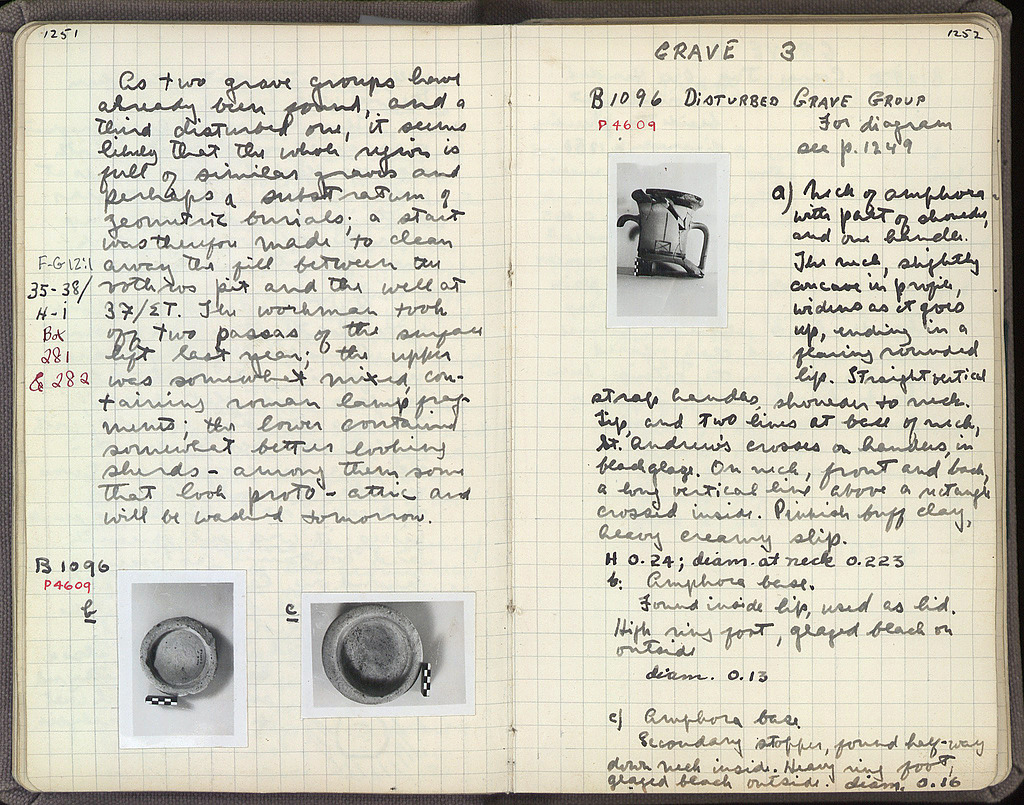 1251
As two grave groups have
already been found, and a
third disturbed one, it seems
likely that the whole region is
full of similar graves and
perhaps a substratum of
geometric burials; a start
was therefore made to clean
F-G 12:1 away the fill between the
35-38/ bothros pit and the well at
H-I 37/ΣT. The workman took
Box off two passas of the surface
281 left last year; the upper
& 282 was somewhat mixed, con-
taining roman lamp frag-
ments; the lower contained
somewhat better looking
sherds - among them some
that look proto-attic and
will be washed tomorrow.
B 1096
P 4609
b
c
1252
GRAVE 3
B 1096 DISTURBED GRAVE GROUP
P 4609
For diagram
see p. 1249
a) Neck of amphora
with part of shoulder,
and one handle.
The neck, slightly
concave in profile,
widens as it goes
up, ending in a
flaring rounded
lip. Straight vertical
strap handles, shoulder to neck.
Lip, and two lines at base of neck,
St. Andrew's crosses on handles, in
black glaze. On neck, front and back,
a long vertical line above a rectangle
crossed inside. Pinkish buff clay,
heavy creamy slip.
H 0.24; diam. at neck 0.223
b: Amphora base.
Found inside lip, used as lid.
High ring foot, glazed black on
outside
diam. 0.13
c) Amphora base
Secondary stopper, found half-way
down neck inside. Heavy ring foot,
glazed black outside. diam. 0.16